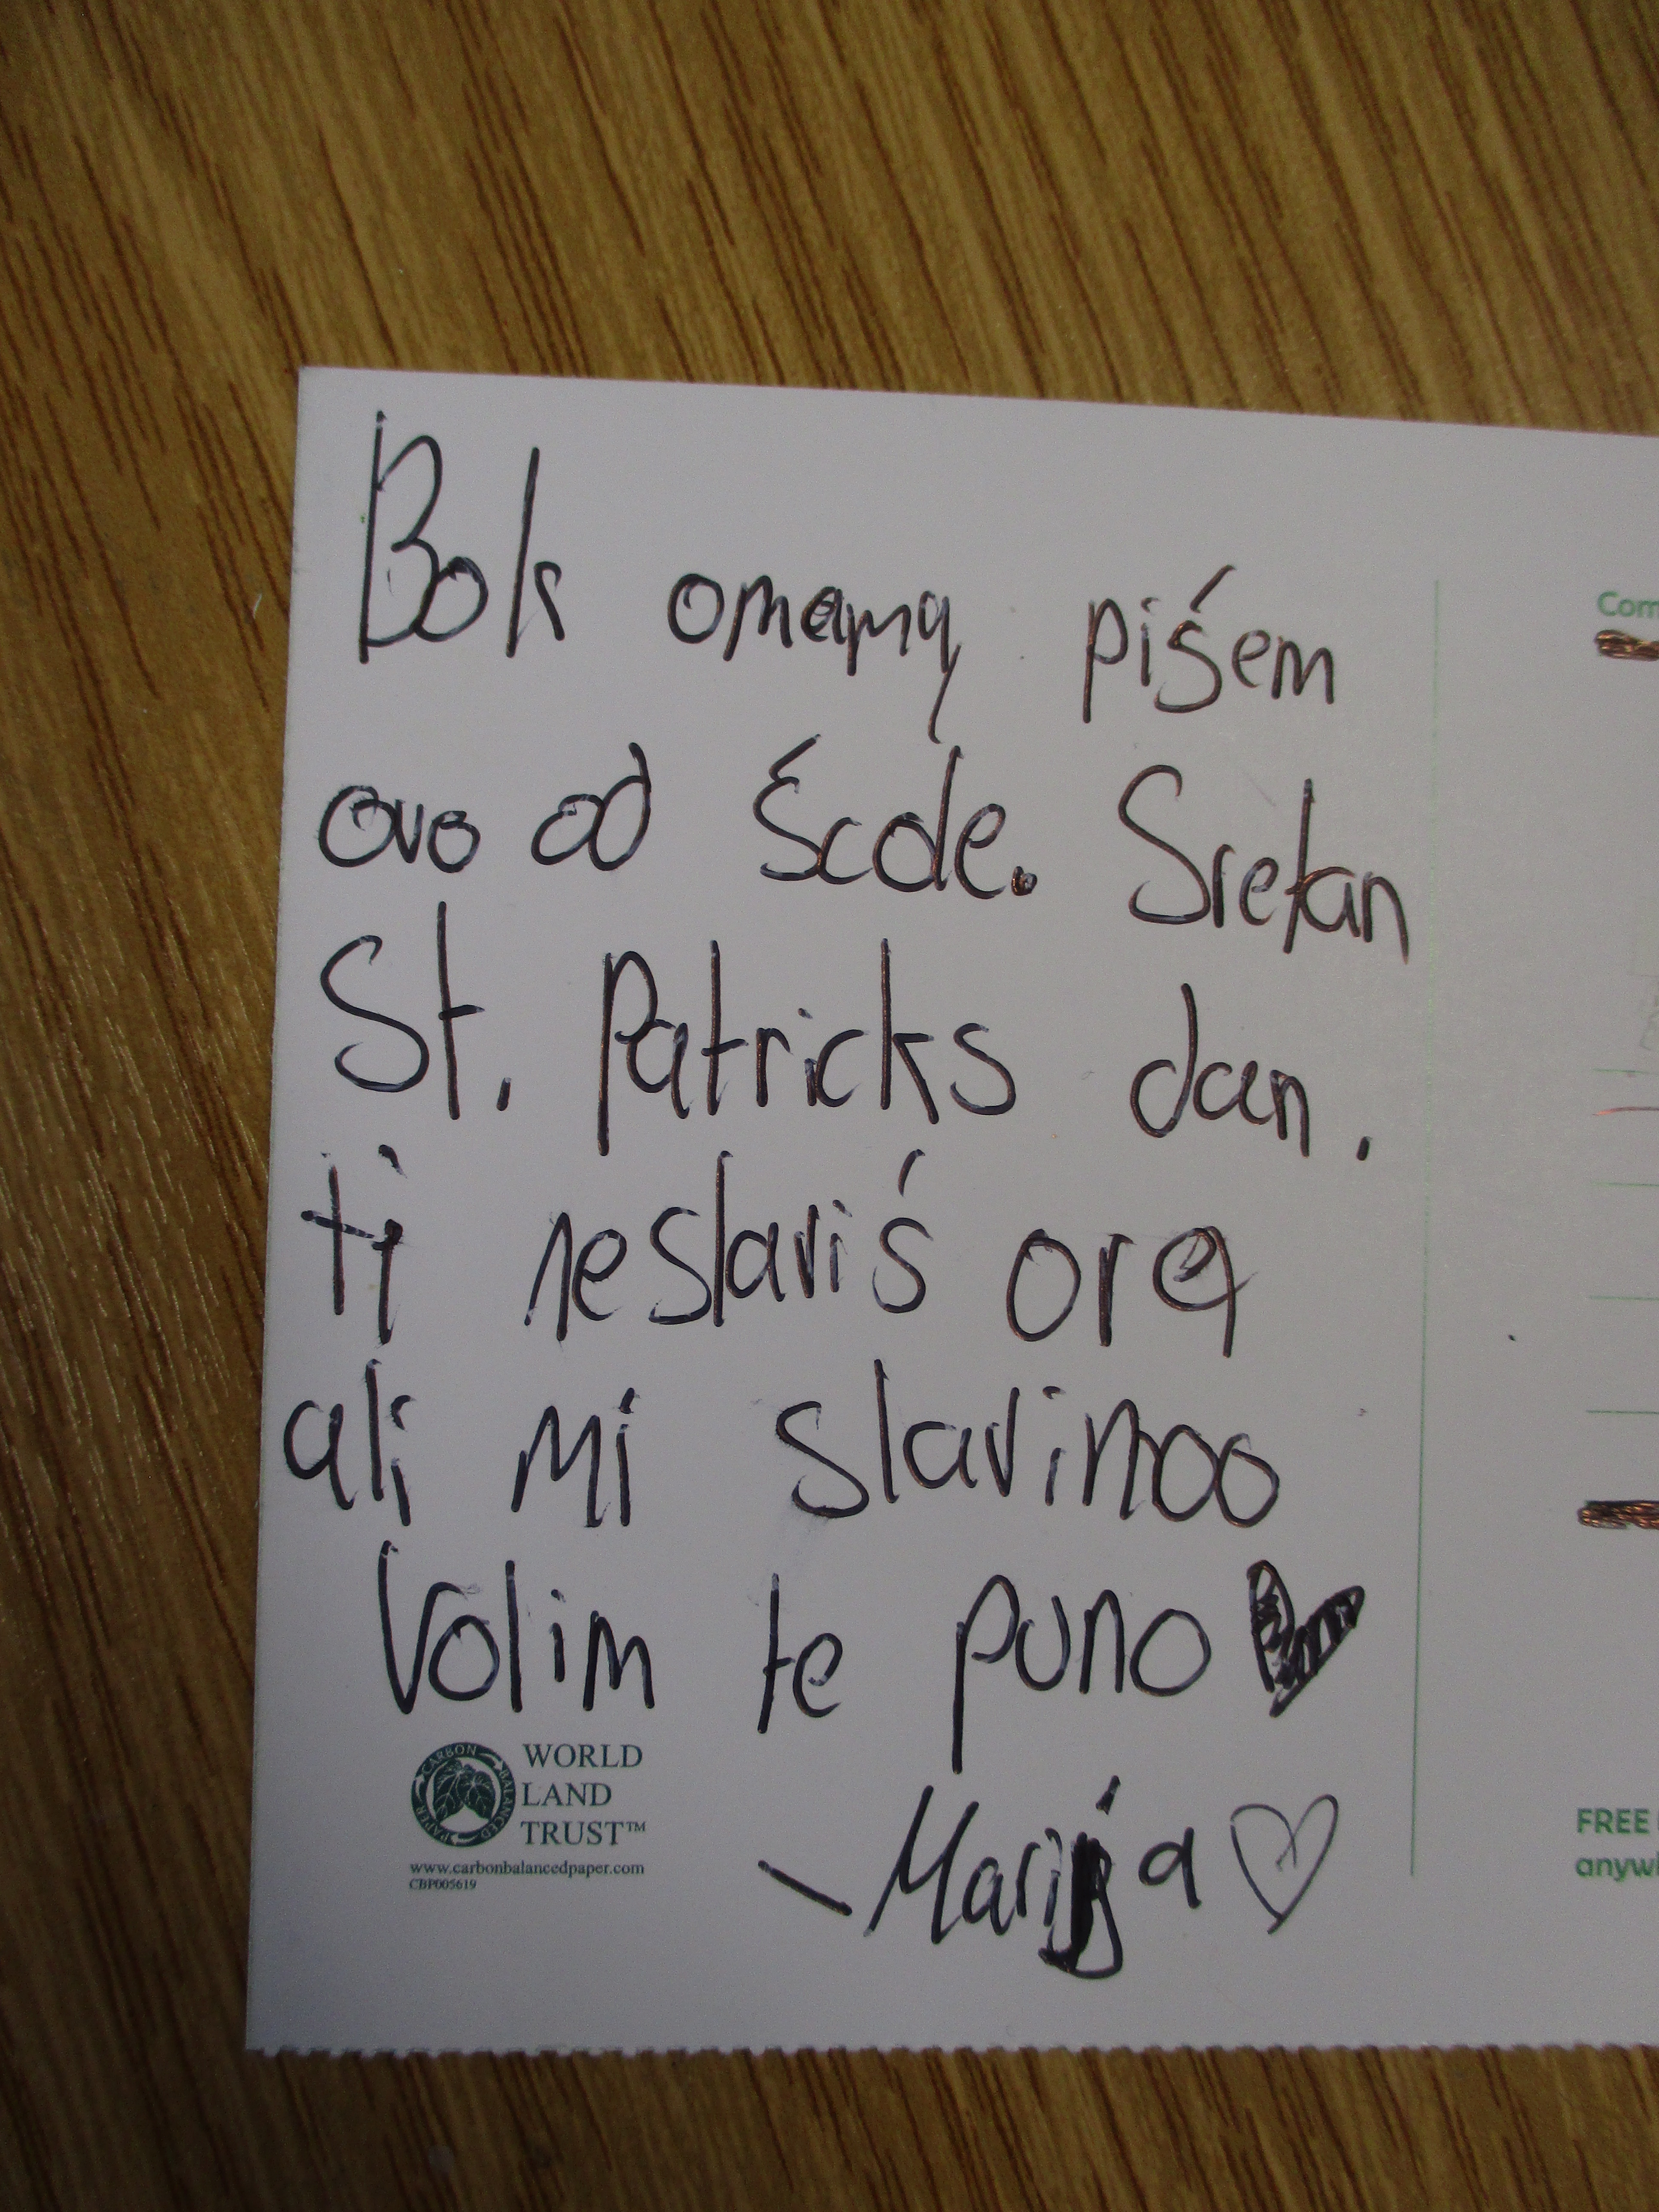 Bok omama piśem
ovo odŚcole. Sretan
St. Patricks dan.
ti neslaviś ora
ali mi slavimoo
Volim te puno
WORLD
LAND
TRUST™
CARBON BALANCED PAPER
www.carbonbalancedpaper.com
CBP005619
\ Marija
Com
FREE
anywh